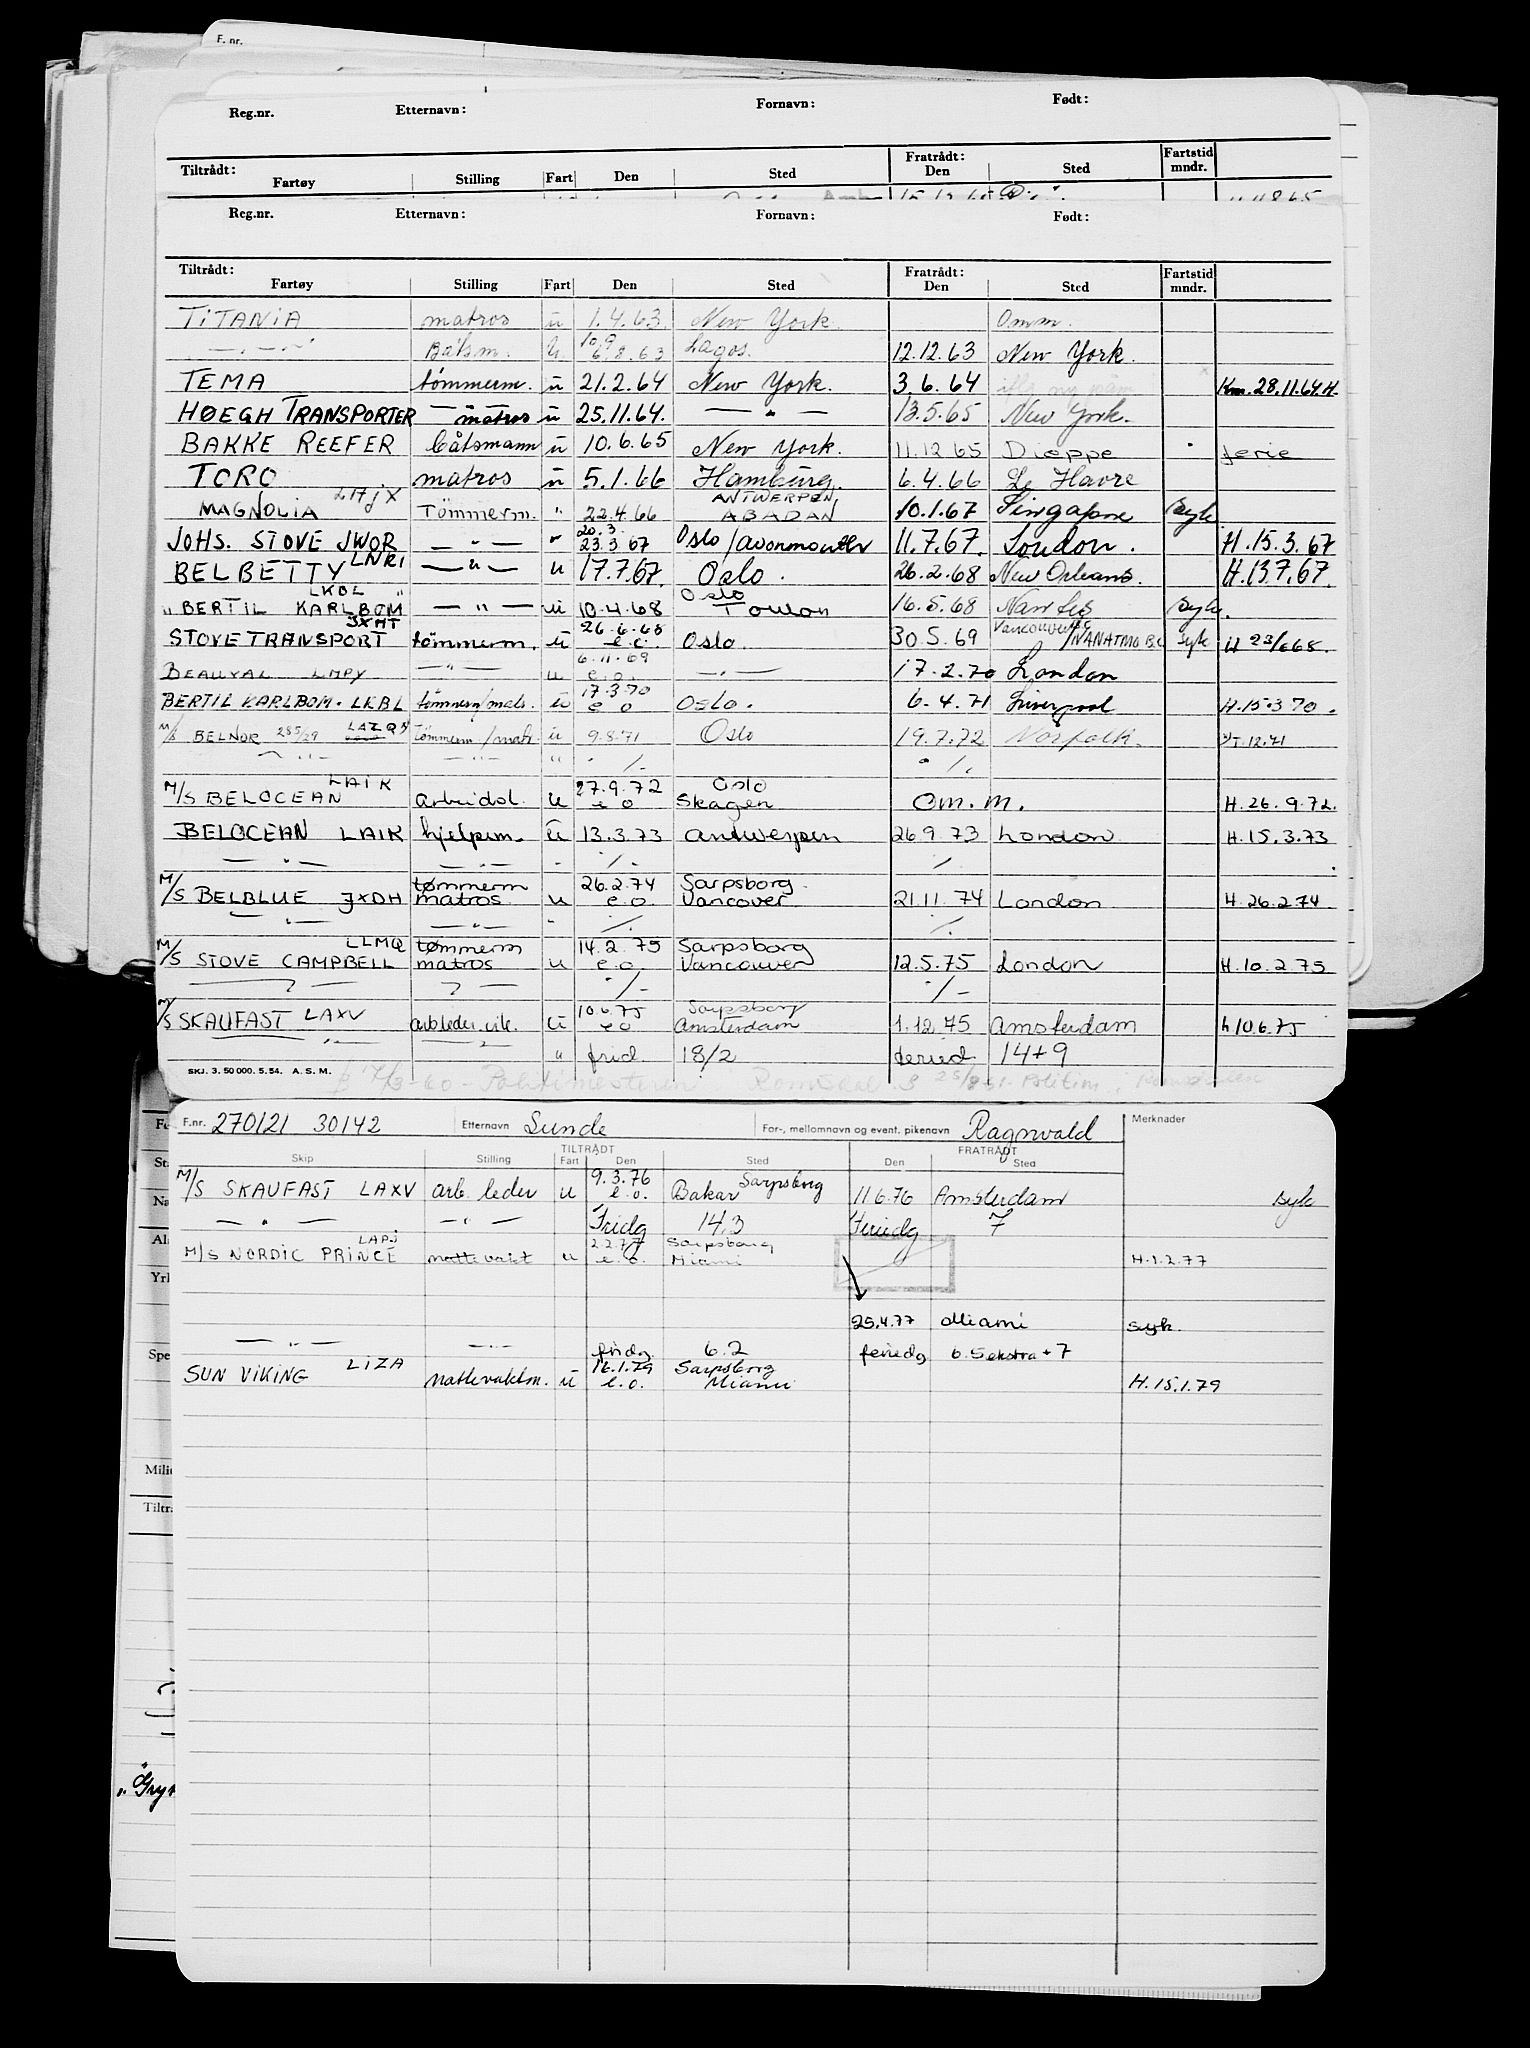 F. nr.
Reg.nr. Etternavn: Fornavn: Født:
Tiltrådt: Fratrådt: Fartstid
Fartøy Stilling Fart Den Sted Den Sted mndr.
Reg.nr. Etternavn: Fornavn: Født:
Tiltrådt: Fratrådt: Fartstid
Fartøy Stilling Fart Den Sted Den Sted mndr.
TITANIA matros u 1.4.63. New York. Omm.
— " — Båtsm. u. 10.9 6.8.63 Lagos. 12.12.63 New York.
TEMA tømmerm. u 21.2.64 New York. 3.6.64 Km. 28.11.64.H.
HØEGH TRANSPORTER matros u 25.11.64. — " — 13.5.65 New York.
BAKKE REEFER båtsmann u 10.6.65 New York. 11.12 65 Dieppe ferie
TORO matros u 5.1.66 Hamburg. 6.4.66 Le Havre
MAGNOLIA Tømmerm. " 22.4.66 ANTWERPEN ABADAN 10.1.67 Singapore Syk
JOHS. STOVE JWOR — " — " 20.3. 23.3.67 Oslo/avonmouth 11.7.67. London. H.15.3.67
BELBETTY LNRI — " — u 17.7.67. Oslo. 26.2.68 New Orleans. H.13.7.67.
" BERTIL KARLBOM LKBL " — " — u 10.4.68 Oslo Toulon 16.5.68 Nantes Syk.
STOVE TRANSPORT JXMT tømmerm. u 26.6.68 e.o. Oslo. 30.5.69 Vancouver BC /NANAIMO B.C syk H 23/668.
BEAUVAL LMPY — " — u 6.11.69 e.o. — " — 17.2.70 London
BERTIL KARLBOM. LKBL tømmerm/mats. u 17.3.70 e o Oslo. 6.4.71 Liverpool H.15.3 70.
M/S BELNOR 285/29 LAZQ tømmerm./matr. u 9.8.71 Oslo 19.7.72 Norfolk.
— " — — " — " ·/. ·/.
M/S BELOCEAN LAIK arbeidsl. u 27.9.72 e o Oslo Skagen Om.m. H.26.9.72.
BELOCEAN LAIK hjelpem. u 13.3.73 Antwerpen 26 9.73 London H.15.3.73
— " — — " — - ·/. ·/.
M/S BELBLUE JXDH tømmerm matros u 26.2.74 e.o. Sarpsborg. Vancover 21.11.74 London H.26.2.74
— " — — " — - ·/. ·/.
M/S STOVE CAMPBELL LLMQ tømmerm matros u 14.2.75 e.o. Sarpsborg Vancouver 12.5.75 London H.10.2.75
— " — — " — ·/. ·/.
M/S SKAUFAST LAXV arbleder.vik. u 10.6.75 e o Sarpsborg Amsterdam 1.12.75 Amsterdam h10.6.75
— " — — " — " frid. 18/2 feried 14+9
SKJ. 3. 50 000. 5. 54. A. S. M.
F.nr. 270121 30142 Etternavn Sunde For-, mellomnavn og event. pikenavn Ragnvald Merknader
TILTRÅDT FRATRÅDT
Skip Stilling Fart Den Sted Den Sted
M/S SKAUFAST LAXV arb. leder u 9.3.76 e.o. Sarpsborg Bakar 11 6.76 Amsterdam syk
— " — — " — Fridg 14,3 Feriedg 7
M/S NORDIC PRINCE LAPJ nattevakt u 2.2.77 e.o. Sarpsborg Miami H.1.2.77
25.4.77 Miami syk.
— " — — " — fridg 6.2 feriedg 6.5 ekstra + 7
SUN VIKING LIZA nattevaktm. u 16.1.79 e.o. Sarpsborg Miami H.15.1.79
Yrk
Spe
Tiltr